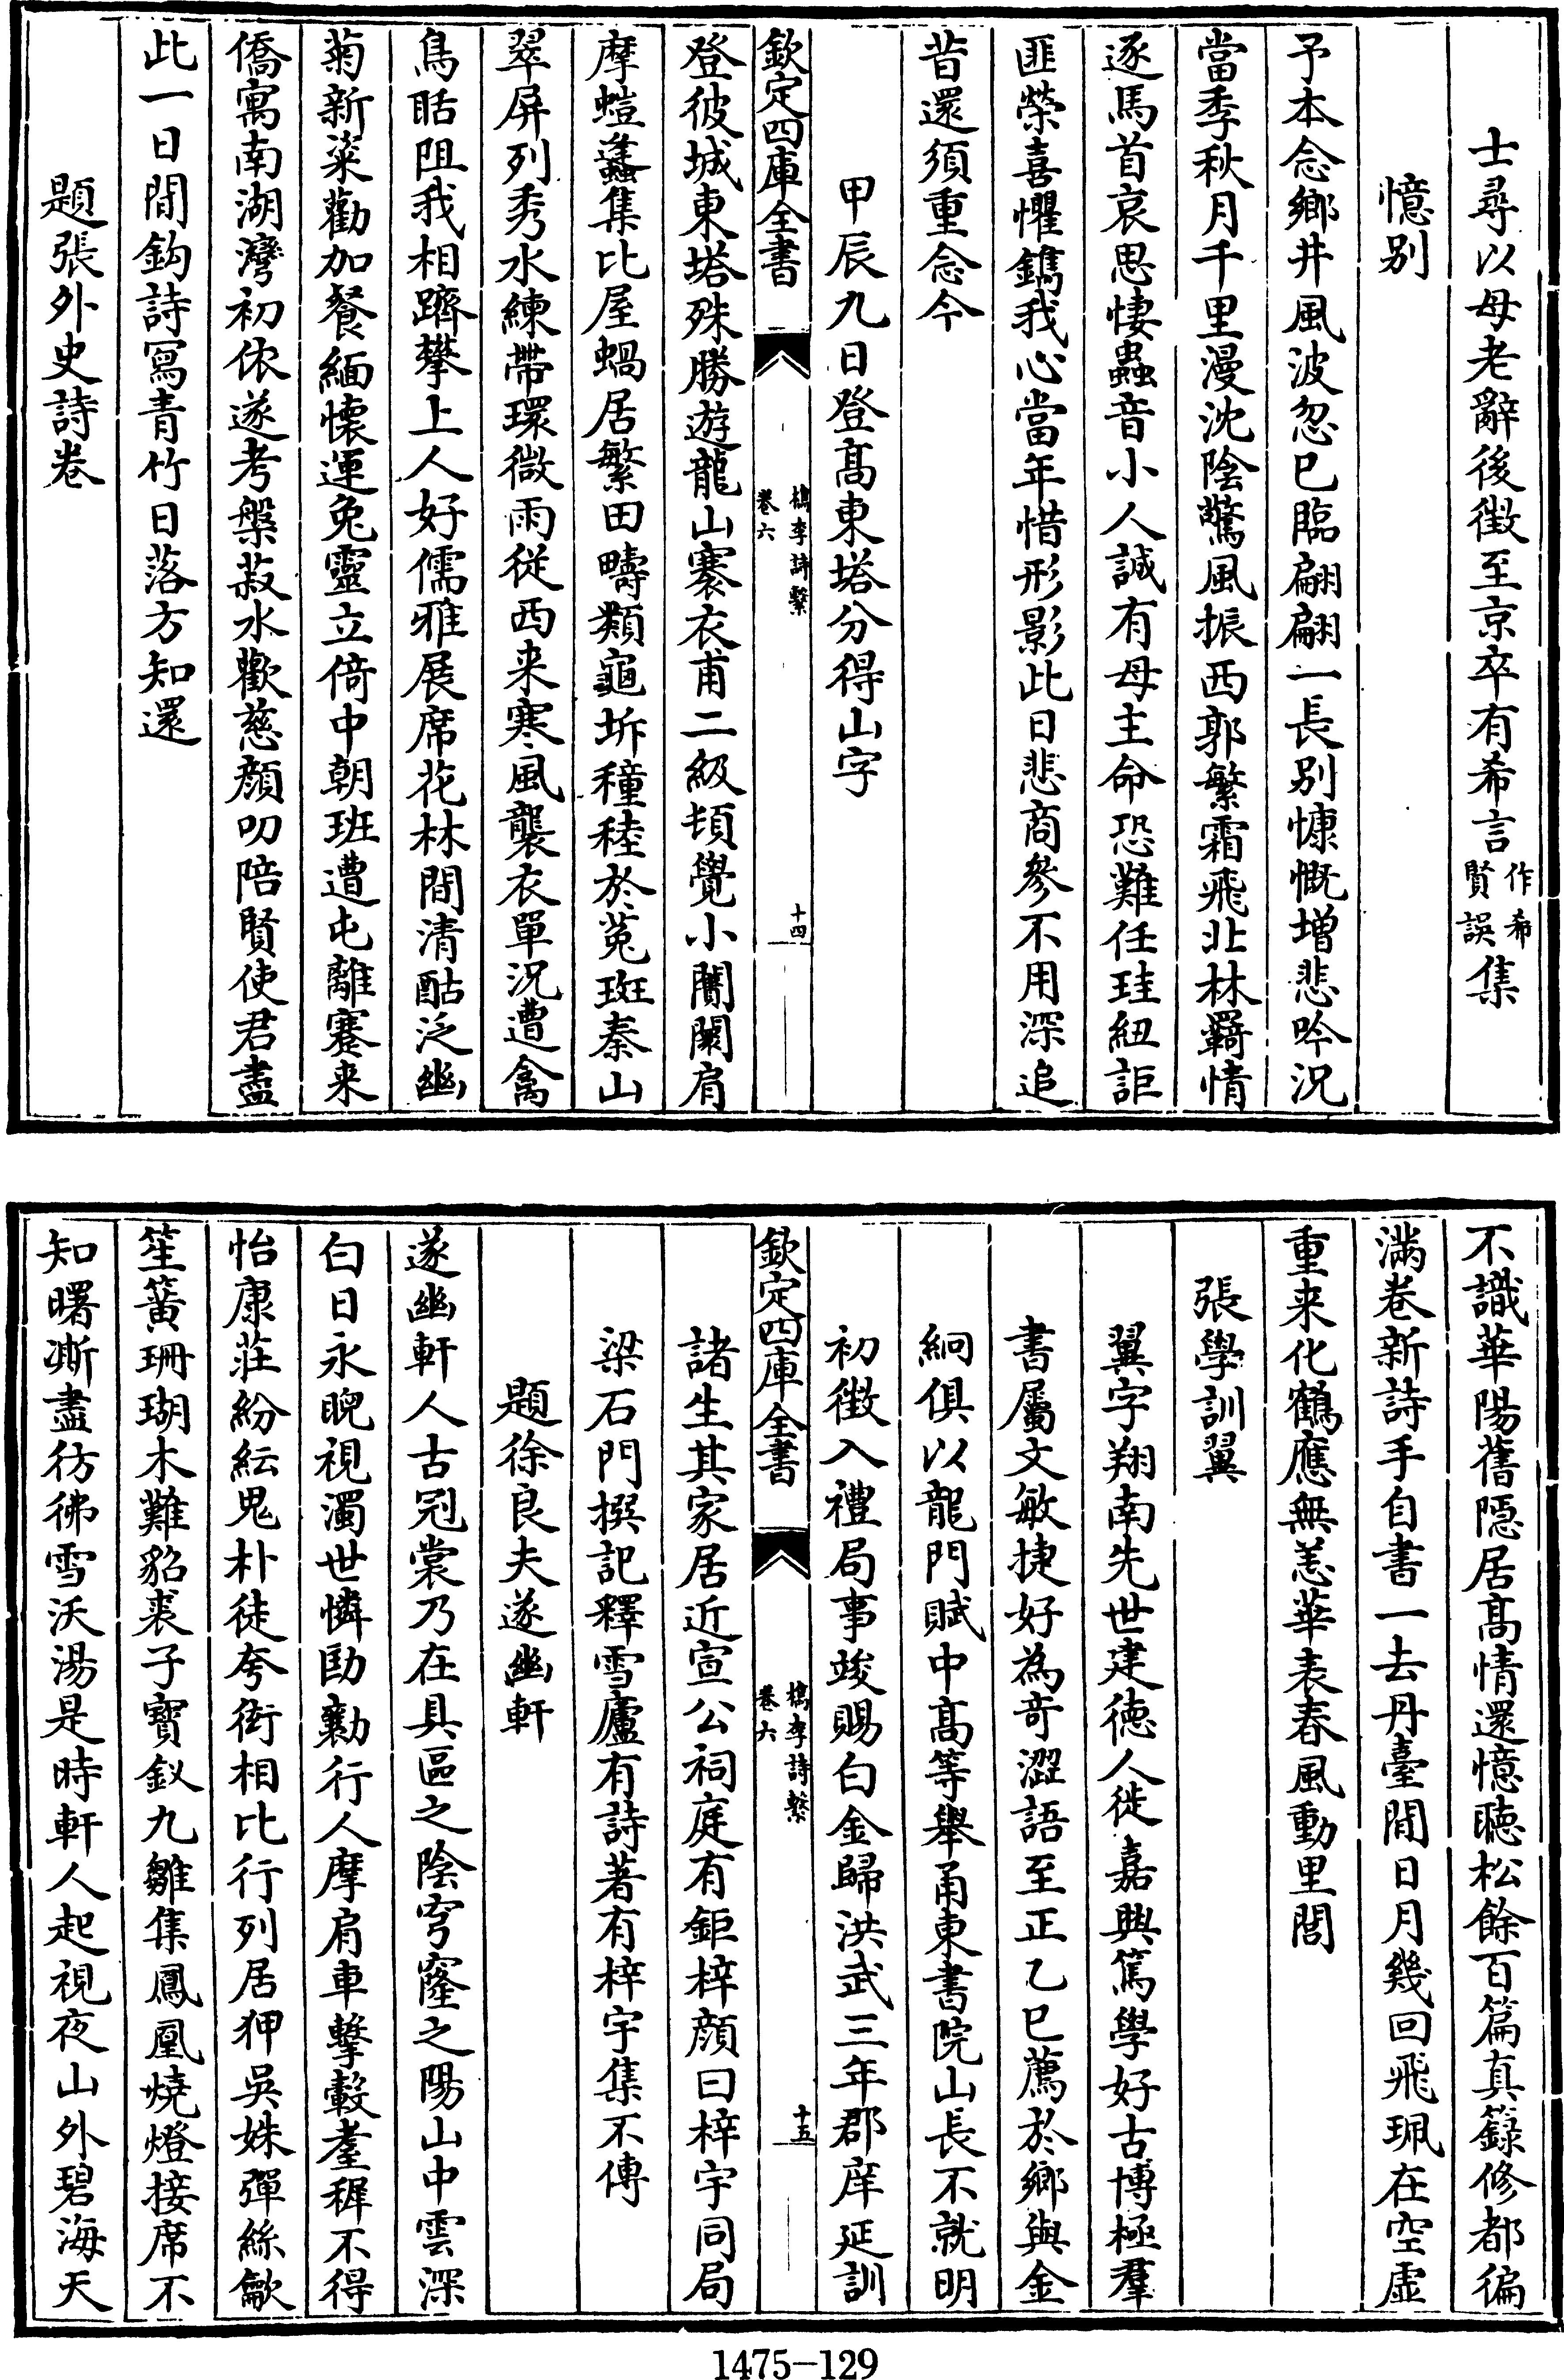 士尋以母老辭後徴至京卒有希言作希賢誤集
憶别
予本念鄉井風波忽已臨翩翩一長别慷慨増悲吟況
當季秋月千里漫沈陰驚風振西郭繁霜飛北林羇情
逐馬首哀思悽蟲音小人誠有母主命恐難任珪紐詎
匪榮喜懼鐫我心當年惜形影此日悲商參不用深追
昔還須重念今
甲辰九日登髙東塔分得山字
欽定四庫全書
檇李詩繫
卷六
十四
登彼城東塔殊勝遊龍山褰衣甫二級頓覺小闤闠肩
摩螘蠭集比屋蝸居繁田疇類龜坼穜稑於菟斑秦山
翠屏列秀水練帶環微雨從西来寒風襲衣單況遭禽
鳥聒阻我相躋攀上人好儒雅展席花林間清酤泛幽
菊新粢勸加餐緬懐運兔靈立倚中朝班遭屯離蹇来
僑寓南湖灣初依遂考槃菽水歡慈顔叨陪賢使君盡
此一日間鈎詩寫青竹日落方知還
題張外史詩卷
不識華陽舊隠居髙情還憶聴松餘百篇真籙修都徧
滿卷新詩手自書一去丹臺閒日月幾回飛珮在空虚
重来化鶴應無恙華表春風動里閭
張學訓翼
翼字翔南先世建徳人徙嘉興篤學好古博極羣
書屬文敏捷好為奇澀語至正乙巳薦於鄉與金
絅俱以龍門賦中髙等舉甬東書院山長不就明
初徴入禮局事竣賜白金歸洪武三年郡庠延訓
欽定四庫全書
檇李詩繫
卷六
十五
諸生其家居近宣公祠庭有鉅梓顔曰梓宇同局
梁石門撰記釋雪廬有詩著有梓宇集不傳
題徐良夫遂幽軒
遂幽軒人古冠裳乃在具區之陰穹窿之陽山中雲深
白日永睨視濁世憐劻勷行人摩肩車擊轂耋穉不得
怡康莊紛紜鬼朴徒夸衒相比行列居狎吳姝彈絲歙
笙簧珊瑚木難貂裘子寳釵九雛集鳳凰燒燈接席不
知曙澌盡彷彿雪沃湯是時軒人起視夜山外碧海天
1475-129